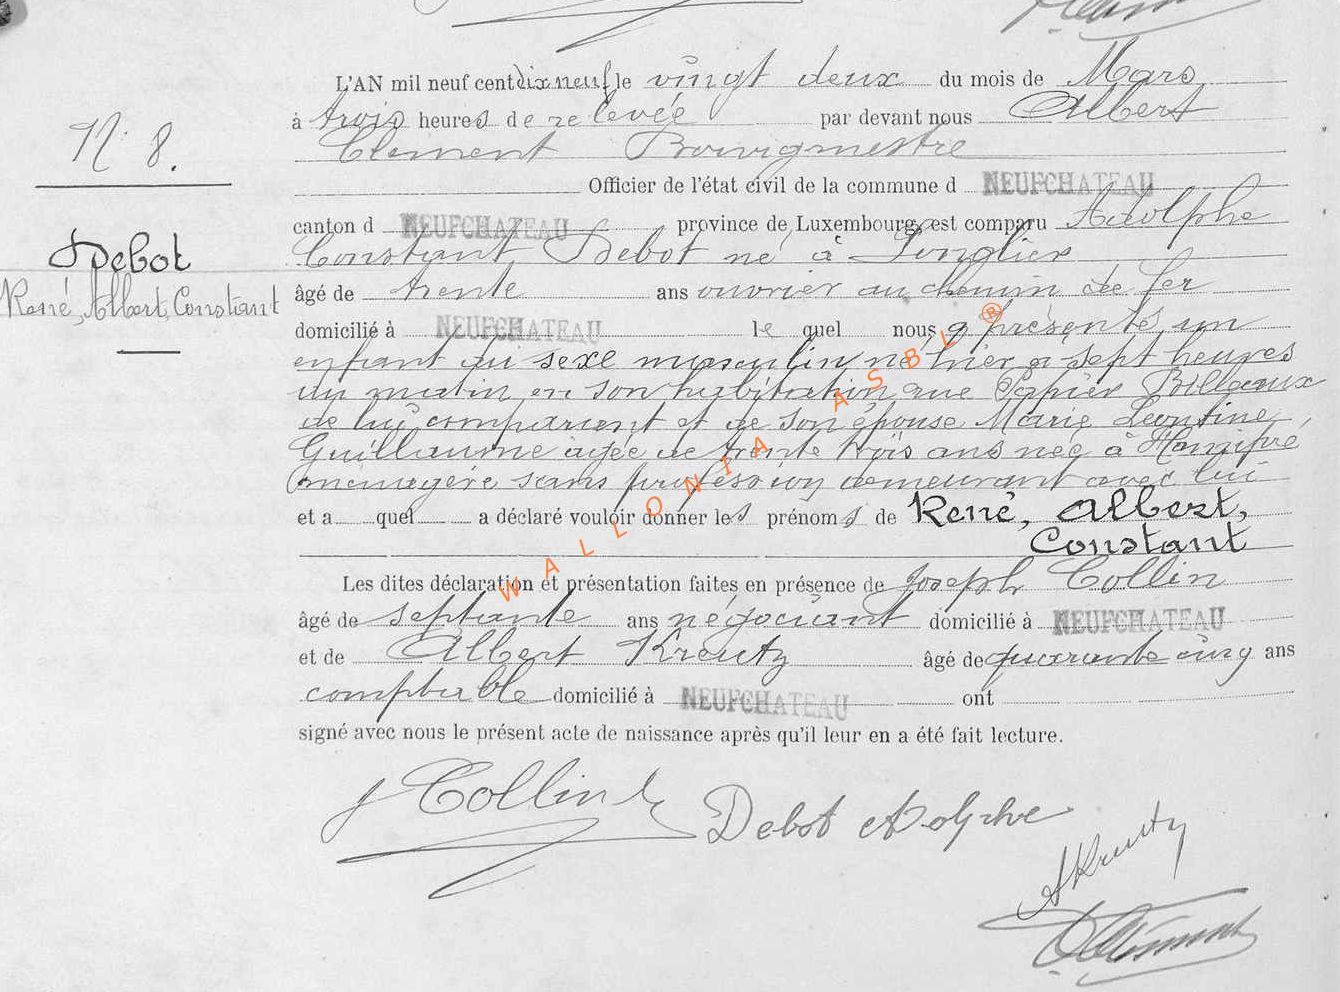 N. 8.
Debot
René, Albert, Constant
L'AN mil neuf cent dix neuf le vingt deux du mois de Mars
à trois heures de relevée par devant nous Albert
Clement Bourgmestre
Officier de l'état civil de la commune d NEUFCHATEAU
canton d NEUFCHATEAU province de Luxembourg, est comparu Adolphe
Constant Debot né à Longlier
âgé de trente ans ouvrier au chemin de fer
domicilié à NEUFCHATEAU le quel nous a présenté un
enfant du sexe masculin né hier a sept heures
du matin en son habitation rue
de lui comparant et de son épouse Marie Leontine
Guillaume agée de trente trois ans née à Hompré
menagère sans profession demeurant avec lui
et a quel a déclaré vouloir donner les prénoms de René, Albert,
Constant
Les dites déclaration et présentation faites en présence de Joseph Collin
âgé de septante ans négociant domicilié à NEUFCHATEAU
et de Albert Kreutz âgé de quarante cinq ans
comptable domicilié à NEUFCHATEAU ont
signé avec nous le présent acte de naissance après qu'il leur en a été fait lecture.
J Collin
Debot Adolphe
A Kreutz
A Clement
WALLONIA ASBL ®